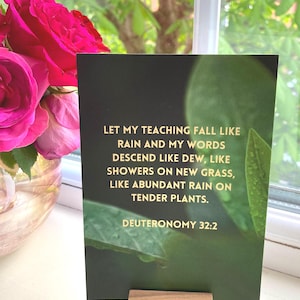 LET MY TEACHING FALL LIKE
RAIN AND MY WORDS
DESCEND LIKE DEW, LIKE
SHOWERS ON NEW GRASS,
LIKE ABUNDANT RAIN ON
TENDER PLANTS.
DEUTERONOMY 32:2